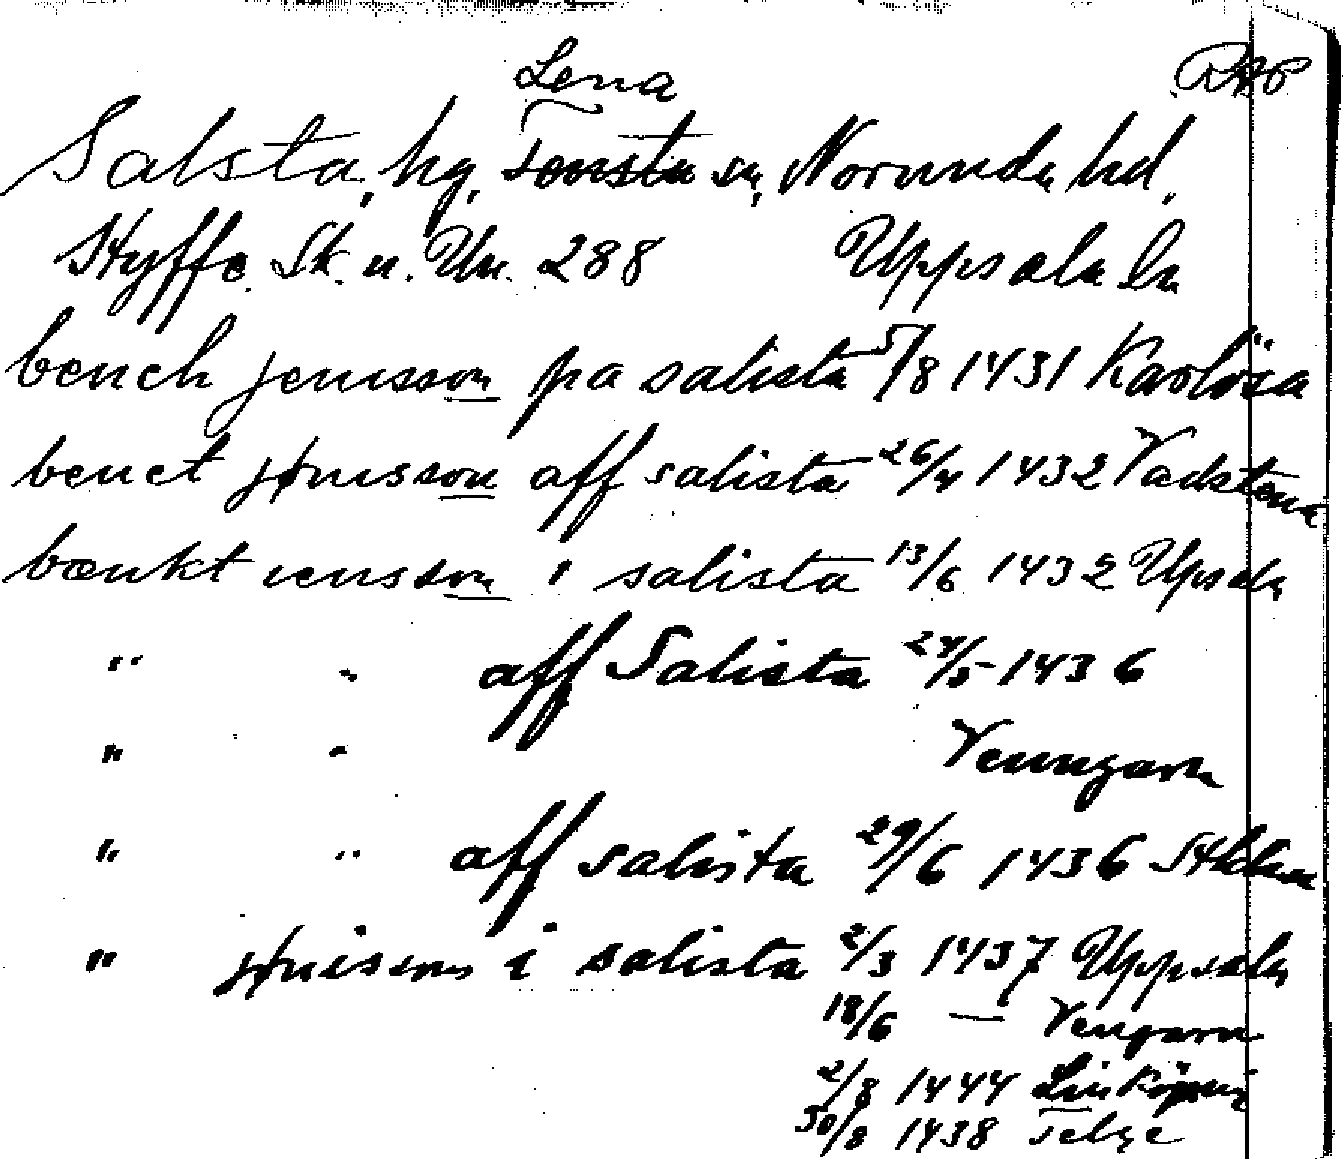 Lena RAP
Salsta, hg, Tensta sn, Norunda hd,
Styffe Sk. u. Un. 288 Uppsala ln
bench jensson pa salista 5/8 1431 Karlösa
benct jønsson aff salista 26/4 1432 Vadstena
bænkt iensson i salista 13/6 1432 Upsala
" " aff Salista 24/5 1436
" " Venngarn
" " aff salista 29/6 1436 Sthlm
" jønisson i salista 2/3 1437 Uppsala
18/6 — Vengarn
2/8 1444 Linköping
30/8 1438 Telge